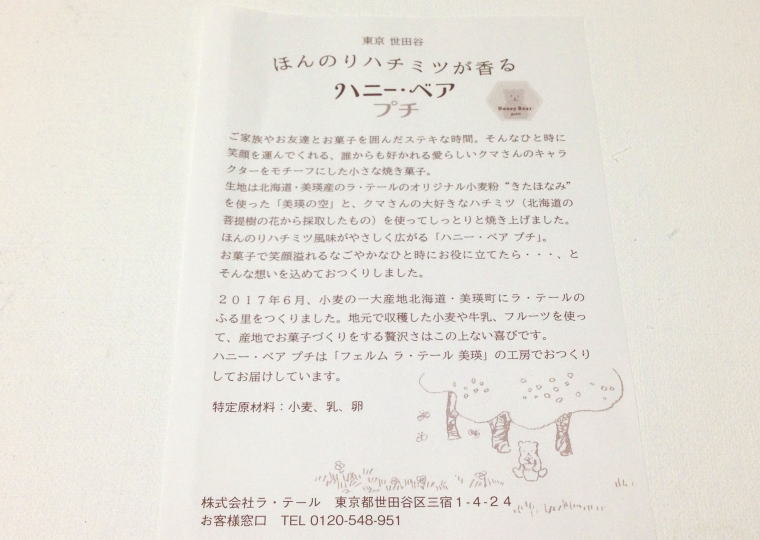 東京 世田谷
ほんのりハチミツが香る
ハニー・ベア
プチ
Honey Bear
petit
ご家族やお友達とお菓子を囲んだステキな時間。そんなひと時に
笑顔を運んでくれる、誰からも好かれる愛らしいクマさんのキャラ
クターをモチーフにした小さな焼き菓子。
生地は北海道・美瑛産のラ・テールのオリジナル小麦粉“きたほなみ”
を使った「美瑛の空」と、クマさんの大好きなハチミツ(北海道の
菩提樹の花から採取したもの)を使ってしっとりと焼き上げました。
ほんのりハチミツ風味がやさしく広がる「ハニー・ベア プチ」。
お菓子で笑顔溢れるなごやかなひと時にお役に立てたら・・・、と
そんな想いを込めておつくりしました。
2017年6月、小麦の一大産地北海道・美瑛町にラ・テールの
ふる里をつくりました。地元で収穫した小麦や牛乳、フルーツを使っ
て、産地でお菓子づくりをする贅沢さはこの上ない喜びです。
ハニー・ベア プチは「フェルム ラ・テール 美瑛」の工房でおつくり
してお届けしています。
特定原材料:小麦、乳、卵
株式会社ラ・テール 東京都世田谷区三宿1-4-24
お客様窓口 TEL 0120-548-951